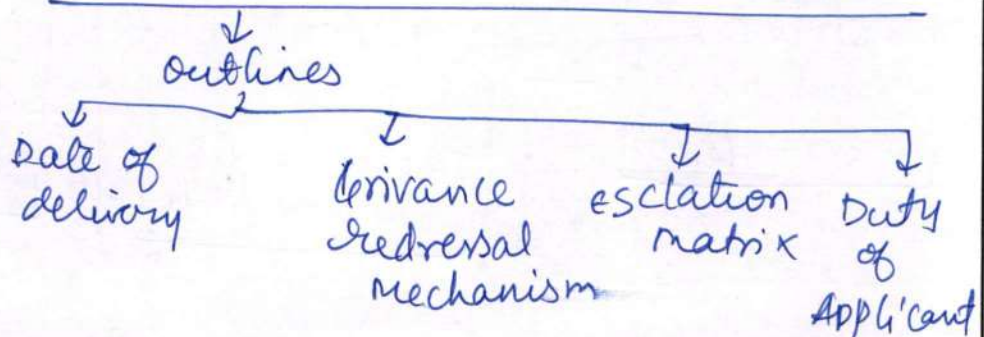 outlines
Date of
delivery
Grivance
redressal
mechanism
esclation
matrix
Duty
of
Applicant